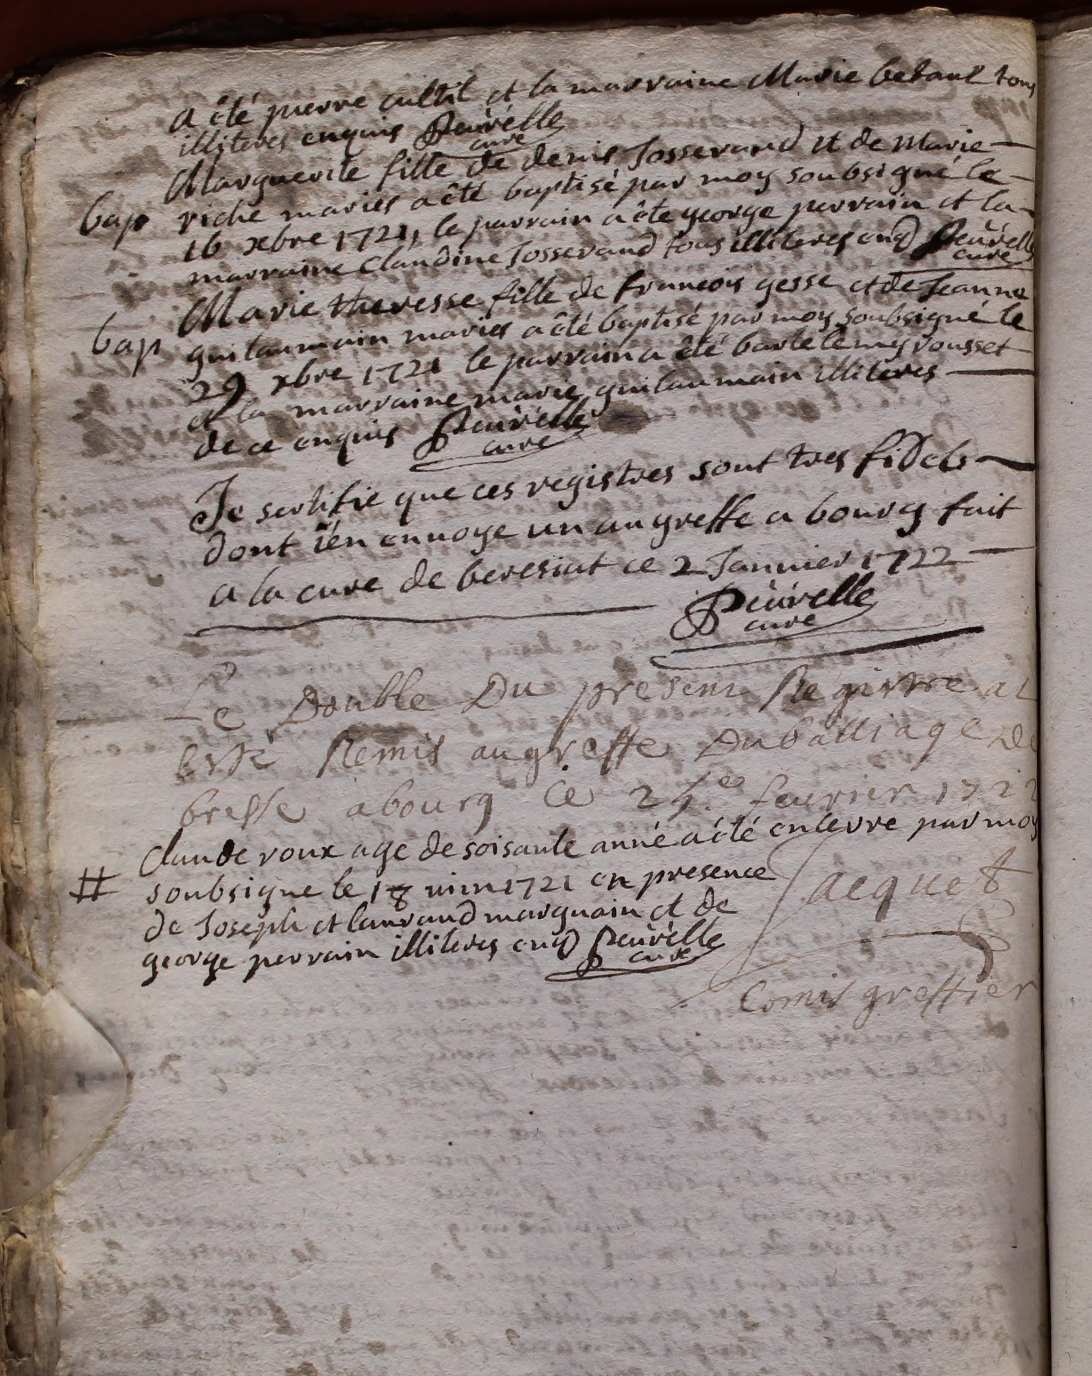 a été pierre cultil et la marraine Marie betant tous
illiteres enquis Peuvrelle
cure
Marguerite fille de denis Josserand et de Marie
bap riche mariés a été baptisé par moy soubsigné le
16 xbre 1721, le parrain a éte george perrain et la
marraine Claudine Josserand tous illiteres enq Peuvrelle
cure
Marie theresse fille de francois gesse et de Jeanne
bap guilaumain mariés a été baptisé par moy soubsigné le
29 xbre 1721 le parrain a été bartelemy rousset
et la marraine marie guilaumain illiteres
de ce enquis Peuvrelle
cure
Je sertifie que ces registres sont tres fidels
dont i'én envoye un au greffe a bourg fait
a la cure de beresiat ce 2 Janvier 1722
Peuvrelle
cure
Le Double Du present Registre at
esté Remis au greffe Du balliage De
bresse a bourg Ce fevrier 1722
Claude roux age de soisante anné a été enterre par moy
# soubsigne le 18 1721 en presence
de Joseph et laurand marguain et de
george perrain illiteres enq Peuvrelle
cure
Jacquet
Comis greffier